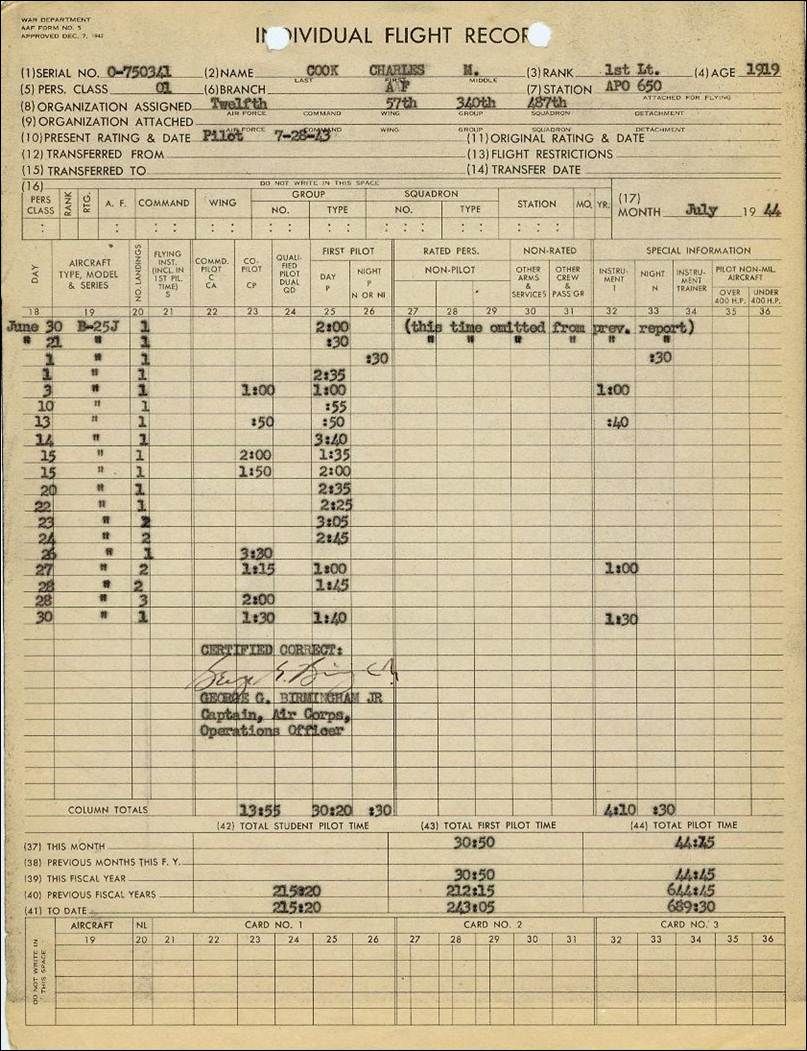 WAR DEPARTMENT
AAF FORM NO. 5
APPROVED DEC. 7, 1942
INDIVIDUAL FLIGHT RECORD
(1) SERIAL NO. O-750341 (2) NAME COOK CHARLES M. (3) RANK 1st Lt. (4) AGE 1919
LAST FIRST MIDDLE
(5) PERS. CLASS 01 (6) BRANCH A F (7) STATION APO 650
(8) ORGANIZATION ASSIGNED Twelfth 57th 340th 487th ATTACHED FOR FLYING
AIR FORCE COMMAND WING GROUP SQUADRON DETACHMENT
(9) ORGANIZATION ATTACHED
AIR FORCE COMMAND WING GROUP SQUADRON DETACHMENT
(10) PRESENT RATING & DATE Pilot 7-28-43 (11) ORIGINAL RATING & DATE
(12) TRANSFERRED FROM (13) FLIGHT RESTRICTIONS
(15) TRANSFERRED TO (14) TRANSFER DATE
(16) DO NOT WRITE IN THIS SPACE
PERS CLASS RANK RTG. A. F. COMMAND WING GROUP NO. TYPE SQUADRON NO. TYPE STATION MO. YR. (17) MONTH July 19 44
DAY AIRCRAFT TYPE, MODEL & SERIES NO. LANDINGS FLYING INST. (INCL. IN 1ST PIL. TIME) S COMMD. PILOT C CA CO-PILOT CP QUALIFIED PILOT DUAL QD FIRST PILOT DAY P NIGHT P N OR NI RATED PERS. NON-PILOT NON-RATED OTHER ARMS & SERVICES OTHER CREW & PASS'GR SPECIAL INFORMATION INSTRUMENT I NIGHT N INSTRUMENT TRAINER PILOT NON-MIL. AIRCRAFT OVER 400 H.P. UNDER 400 H.P.
18 19 20 21 22 23 24 25 26 27 28 29 30 31 32 33 34 35 36
June 30 B-25J 1 2:00 (this time omitted from prev. report)
" 21 " 1 :30 " " " " " "
1 " 1 :30 :30
1 " 1 2:35
3 " 1 1:00 1:00 1:00
10 " 1 :55
13 " 1 :50 :50 :40
14 " 1 3:40
15 " 1 2:00 1:35
15 " 1 1:50 2:00
20 " 1 2:35
22 " 1 2:25
23 " 2 3:05
24 " 2 2:45
26 " 1 3:30
27 " 2 1:15 1:00 1:00
28 " 2 1:45
28 " 3 2:00
30 " 1 1:30 1:40 1:30
CERTIFIED CORRECT:
GEORGE G. BIRMINGHAM JR
Captain, Air Corps,
Operations Officer
COLUMN TOTALS 13:55 30:20 :30 4:10 :30
(42) TOTAL STUDENT PILOT TIME (43) TOTAL FIRST PILOT TIME (44) TOTAL PILOT TIME
(37) THIS MONTH 30:50
(38) PREVIOUS MONTHS THIS F. Y.
(39) THIS FISCAL YEAR 30:50 44:45
(40) PREVIOUS FISCAL YEARS 215:20 212:15 644:45
(41) TO DATE 215:20 243:05 689:30
AIRCRAFT NL CARD NO. 1 CARD NO. 2 CARD NO. 3
19 20 21 22 23 24 25 26 27 28 29 30 31 32 33 34 35 36
DO NOT WRITE IN THIS SPACE